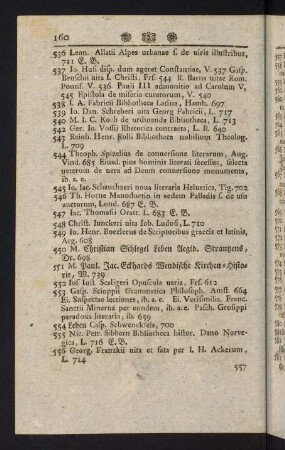 160
536 Leon. Allatii Apes urbanae s. de uiris illustribus,
711 E. B.
537 Io. Husi disp. dum ageret Constantiae, V. 537 Gasp.
Bruschii uita I. Christi, Frf. 544 R. Barns uitae Rom.
Pontif. V. 536 Pauli III admonitio ad Carolum V,
545 Epistola de miseria curatorum, 540
538 I. A. Fabricii Bibliotheca Latina, Hamb. 697
539 Io. Dan. Schreberi uita Georg Fabricii, L. 717
540 M. I. C. Koch de ordinanda Bibliotheca, L. 713
542 Ger. Io. Vossii Rhetorica contracta, L. B. 640
543 Reinh. Henr. Rolli Bibliotheca nobilium Theolog.
L. 709
544 Theoph. Spizelius de conuersione literarum, Aug.
Vind. 685 Eiusd. pius hominis literati secessus, selecta
ueterum de uera ad Deum conuersione monumenta,
ib. a. e.
545 Io. Iac. Scheuchzeri noua literaria Heluetica, Tig. 702
546 Th. Horne Manuductio in aedem Palladis s. de usu
auctorum, Lond. 687 E. B.
547 Iac. Thomasii Oratt. L. 683 E. B.
548 Christ. Iunckeri uita Iob. Ludolfi, L. 710
549 Io. Henr. Boeclerus de Scriptoribus graecis et latinis,
Arg. 608
550 M. Christian Schlegel Leben Aegid. Strauchens,
Dr. 698
551 M. Paul. Jac. Eckhards Wendische Kirchen-Histo-
rie, W. 739
552 Ios. Iust. Scaligeri Opuscula uaria, Frf. 612
553 Gasp. Scioppii Grammatica Philosoph. Amst. 664
Ei. Suspectae lectiones, ib. a. e. Ei. Verisimilia. Franc.
Sanctii Minerua per eundem, ib. a. e. Pasch. Grosippi
paradoxa literaria, ib. 659
554 Leben Casp. Schwenckfels, 700
555 Nic. Petr. Sibbern Bibliotheca histor. Dano Norve-
gica, L. 716 E. B.
556 Georg. Franzkii uita et fata per I. H. Ackerum,
L. 714
557